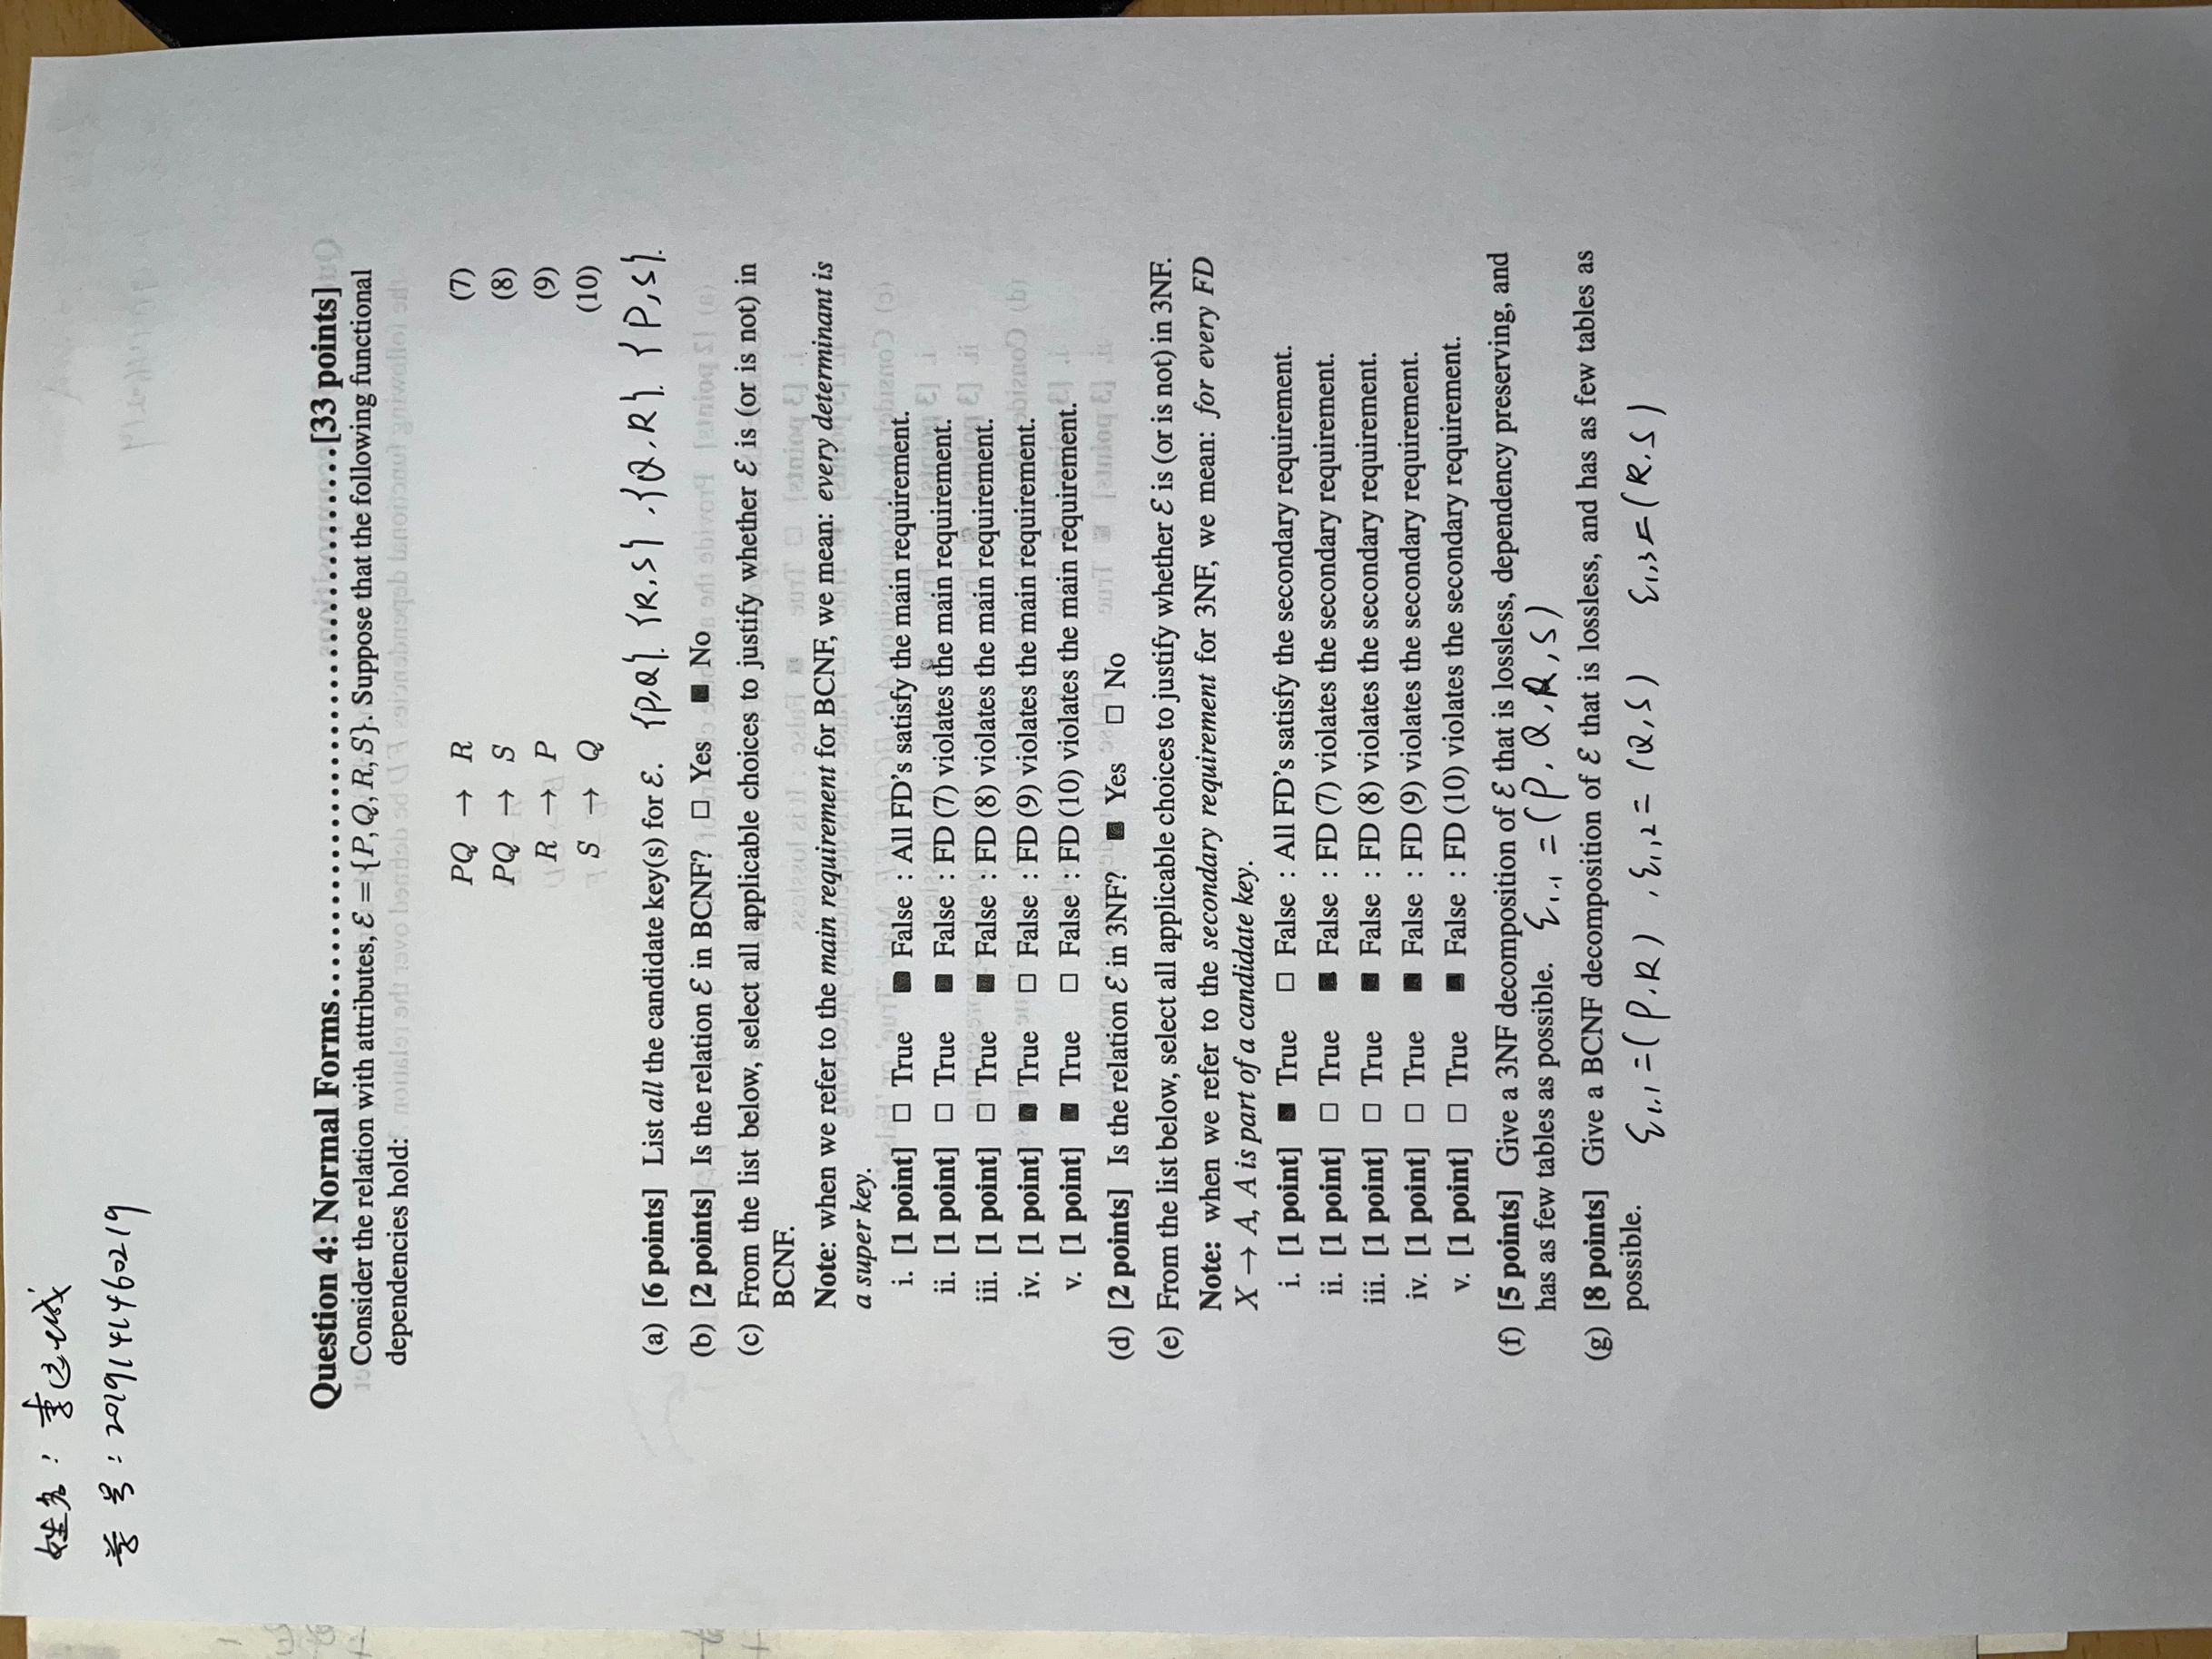 姓名：李
学号：2019141460219
Question 4: Normal Forms......................................[33 points]
Consider the relation with attributes, ℰ = {P, Q, R, S}. Suppose that the following functional
dependencies hold:
PQ → R (7)
PQ → S (8)
R → P (9)
S → Q (10)
(a) [6 points] List all the candidate key(s) for ℰ. {P,Q}. {R,S}. {Q,R}. {P,S}.
(b) [2 points] Is the relation ℰ in BCNF? □ Yes ■ No
(c) From the list below, select all applicable choices to justify whether ℰ is (or is not) in
BCNF.
Note: when we refer to the main requirement for BCNF, we mean: every determinant is
a super key.
i. [1 point] □ True ■ False : All FD's satisfy the main requirement.
ii. [1 point] □ True ■ False : FD (7) violates the main requirement.
iii. [1 point] □ True ■ False : FD (8) violates the main requirement.
iv. [1 point] ■ True □ False : FD (9) violates the main requirement.
v. [1 point] ■ True □ False : FD (10) violates the main requirement.
(d) [2 points] Is the relation ℰ in 3NF? ■ Yes □ No
(e) From the list below, select all applicable choices to justify whether ℰ is (or is not) in 3NF.
Note: when we refer to the secondary requirement for 3NF, we mean: for every FD
X → A, A is part of a candidate key.
i. [1 point] ■ True □ False : All FD's satisfy the secondary requirement.
ii. [1 point] □ True ■ False : FD (7) violates the secondary requirement.
iii. [1 point] □ True ■ False : FD (8) violates the secondary requirement.
iv. [1 point] □ True ■ False : FD (9) violates the secondary requirement.
v. [1 point] □ True ■ False : FD (10) violates the secondary requirement.
(f) [5 points] Give a 3NF decomposition of ℰ that is lossless, dependency preserving, and
has as few tables as possible. ξ1,1 = (P, Q, R, S)
(g) [8 points] Give a BCNF decomposition of ℰ that is lossless, and has as few tables as
possible. ξ1,1 = (P.R) , ξ1,2 = (Q,S) ξ1,3 = (R.S)